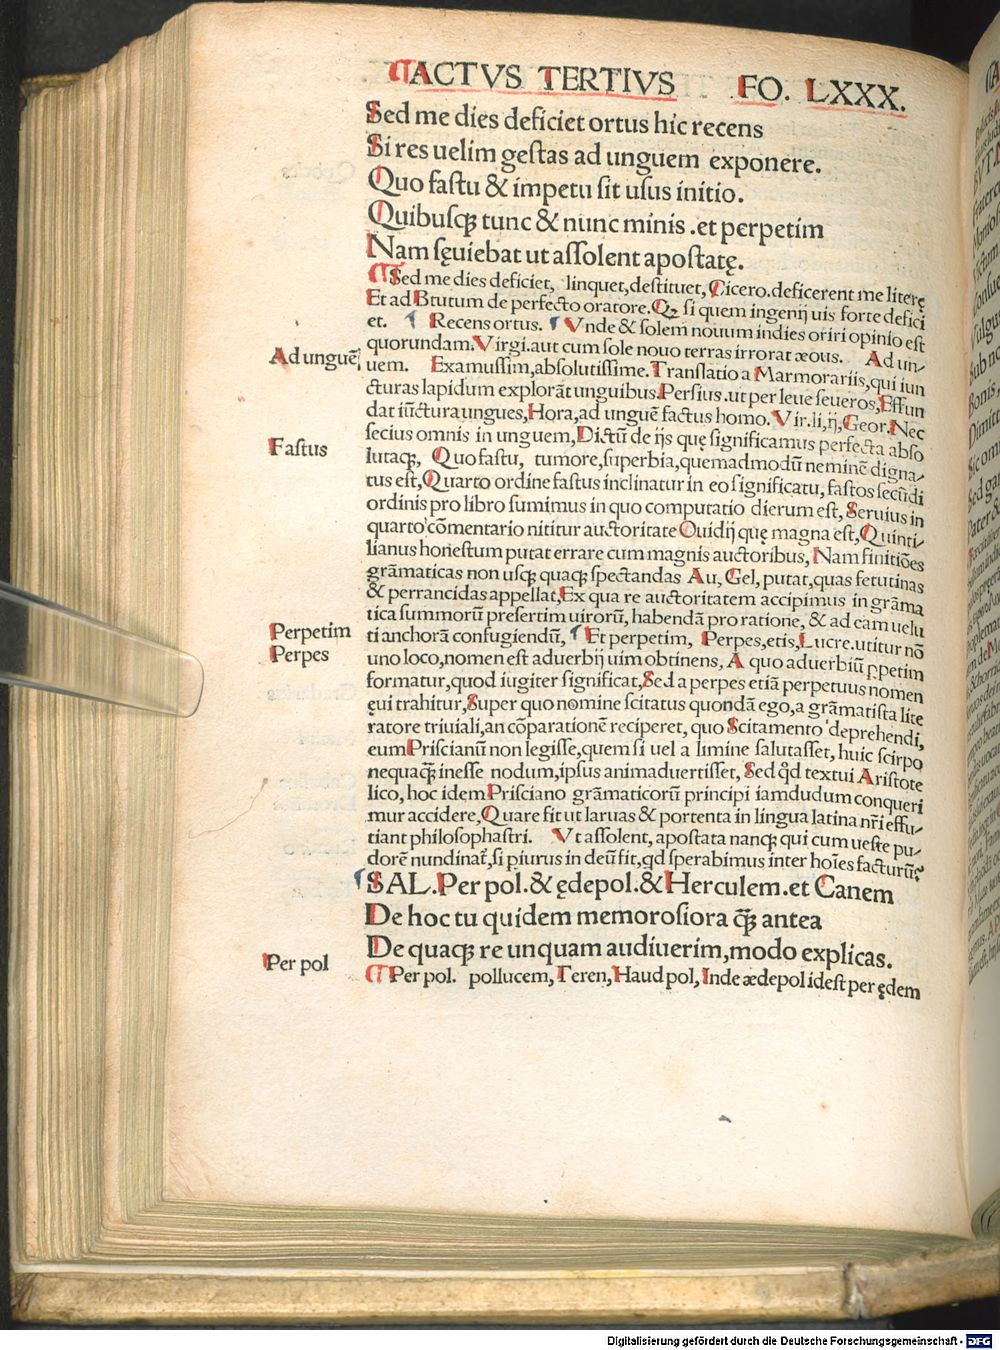 ACTVS TERTIVS FO. LXXX.
Sed me dies deficiet ortus hic recens
Si res uelim gestas ad unguem exponere.
Quo fastu & impetu sit usus initio.
Quibusq̃ tunc & nunc minis .et perpetim
Nam sęuiebat ut assolent apostatę.
Sed me dies deficiet, linquet,destituet, Cicero.deficerent me literę
Et ad Brutum de perfecto oratore. Qꝫ si quem ingenij uis forte defici
et. Recens ortus. Vnde & solem nouum indies oriri opinio est
quorundam.Virgi.aut cum sole nouo terras irrorat æous. Ad un/
Ad unguē uem. Examussim,absolutissime.Translatio a Marmorariis,qui iun
cturas lapidum explorāt unguibus.Persius.ut per leue seueros,Effun
dat iūctura ungues,Hora,ad unguē factus homo. Vir.li,ij,Geor.Nec
secius omnis in unguem,Dictū de ijs quę significamus perfecta abso
Fastus lutaq̃, Quo fastu, tumore,superbia,quemadmodū neminē digna/
tus est,Quarto ordine fastus inclinatur in eo significatu, fastos secūdi
ordinis pro libro sumimus in quo computatio dierum est, Seruius in
quarto cōmentario nititur auctoritate Ouidij quę magna est,Quinti/
lianus honestum putat errare cum magnis auctoribus, Nam finitiōes
grāmaticas non usq̃ quaq̃ spectandas Au, Gel, putat,quas fetutinas
& perrancidas appellat,Ex qua re auctoritatem accipimus in grāma
tica summorū presertim uirorū, habendā pro ratione, & ad eam uelu
Perpetim ti anchorā confugiendū, Et perpetim, Perpes,etis,Lucre.utitur nō
Perpes uno loco,nomen est aduerbij uim obtinens, A quo aduerbiū ꝑpetim
formatur,quod iugiter significat,Sed a perpes etiā perpetuus nomen
ęui trahitur,Super quo nomine scitatus quondā ego,a grāmatista lite
ratore triuiali,an cōparationē reciperet, quo Scitamento deprehendi,
eum Priscianū non legisse,quem si uel a limine salutasset, huic scirpo
nequaq̃ inesse nodum,ipsus animaduertisset, Sed qd̄ textui Aristote
lico, hoc idem Prisciano grāmaticorū principi iamdudum conqueri
mur accidere,Quare fit ut laruas & portenta in lingua latina nr̄i effu/
tiant philosophastri. Vt assolent, apostata nanq̃ qui cum ueste pu/
dorē nundinat̃,si piurus in deū sit,qd sperabimus inter hoīes facturū?
SAL.Per pol.& ędepol.& Herculem.et Canem
De hoc tu quidem memorosiora q̃ antea
De quaq̃ re unquam audiuerim,modo explicas.
Per pol Per pol. pollucem, Teren,Haud pol,Inde ædepol idest per ędem
Digitalisierung gefördert durch die Deutsche Forschungsgemeinschaft - DFG